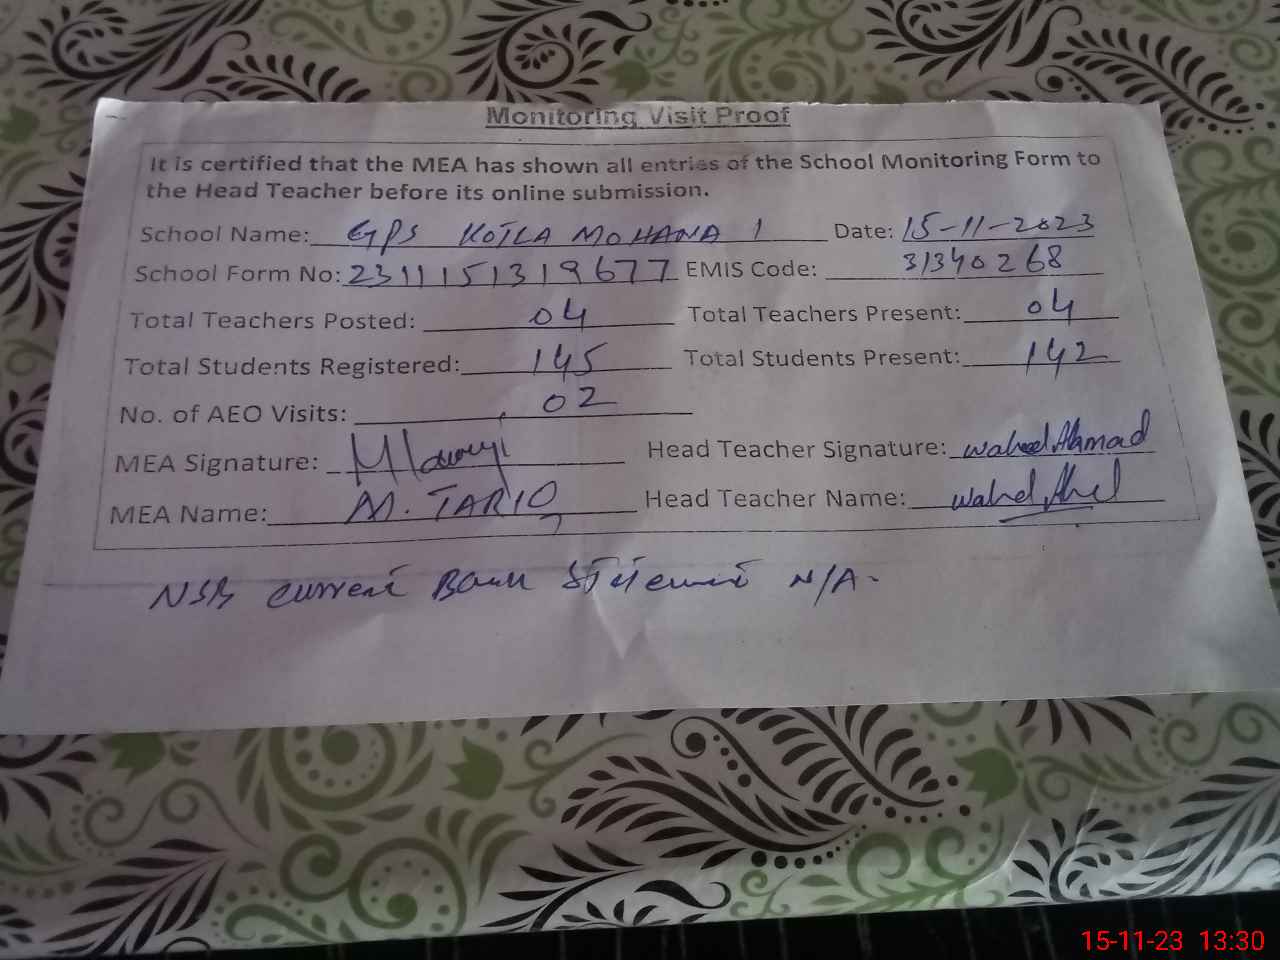 Monitoring Visit Proof
It is certified that the MEA has shown all entries of the School Monitoring Form to
the Head Teacher before its online submission.
School Name: GPS KOTLA MOHANA 1 Date: 15-11-2023
School Form No: 2311151319677 EMIS Code: 31340268
Total Teachers Posted: 04 Total Teachers Present: 04
Total Students Registered: 145 Total Students Present: 142
No. of AEO Visits: 02
MEA Signature: Head Teacher Signature: Waheed Ahmad
MEA Name: M. TARIQ Head Teacher Name:
NSB current Bank Statement N/A-
15-11-23 13:30